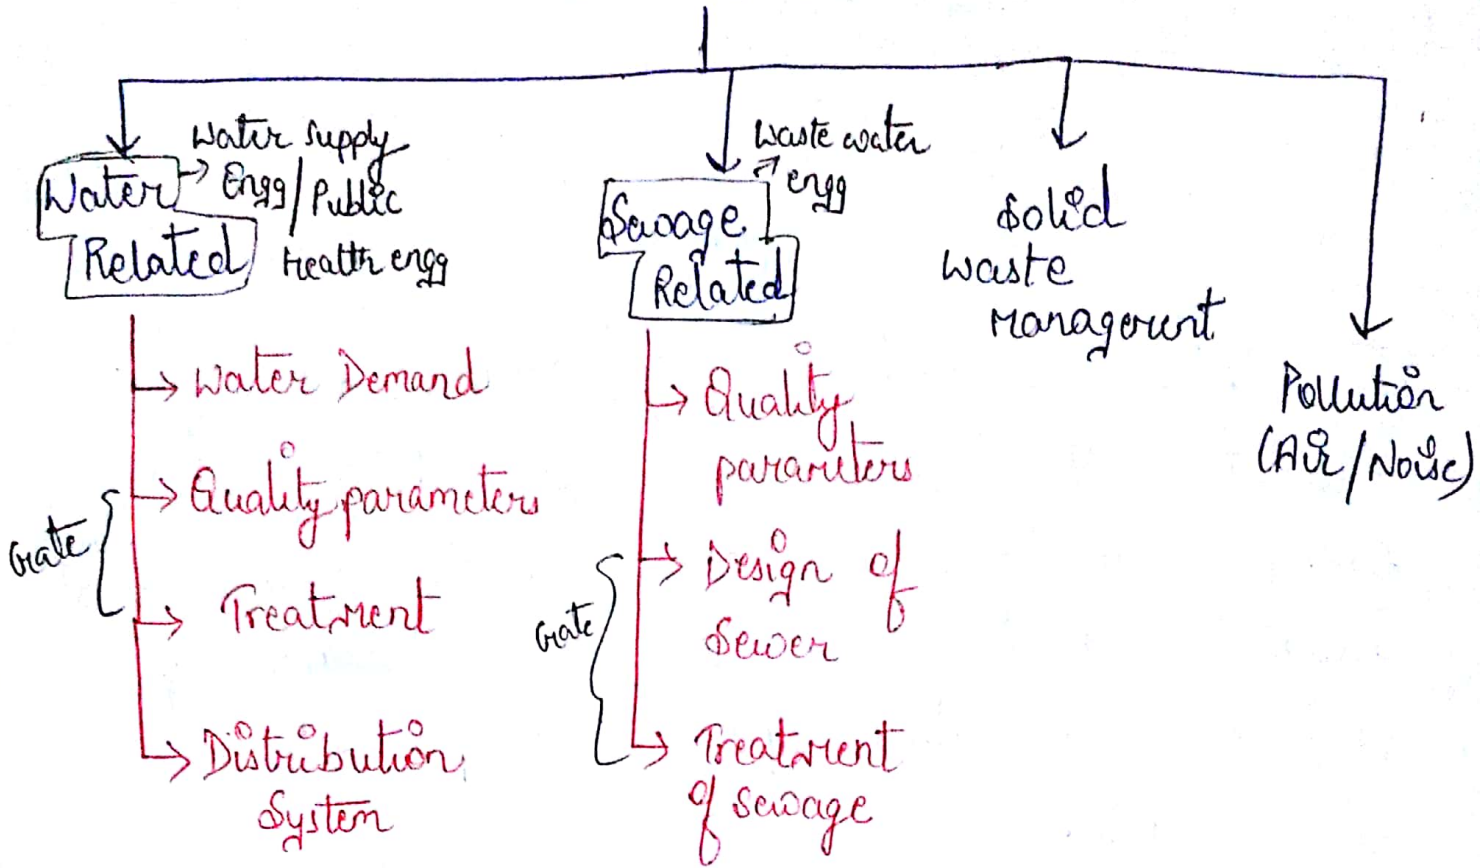 Water
Related
Water supply
Engg/Public
Health engg
Water Demand
Quality parameters
Treatment
Distribution
System
Gate
Sewage
Related
Waste water
engg
Quality
parameters
Design of
Sewer
Treatment
of sewage
Gate
Solid
waste
management
Pollution
(Air/Noise)